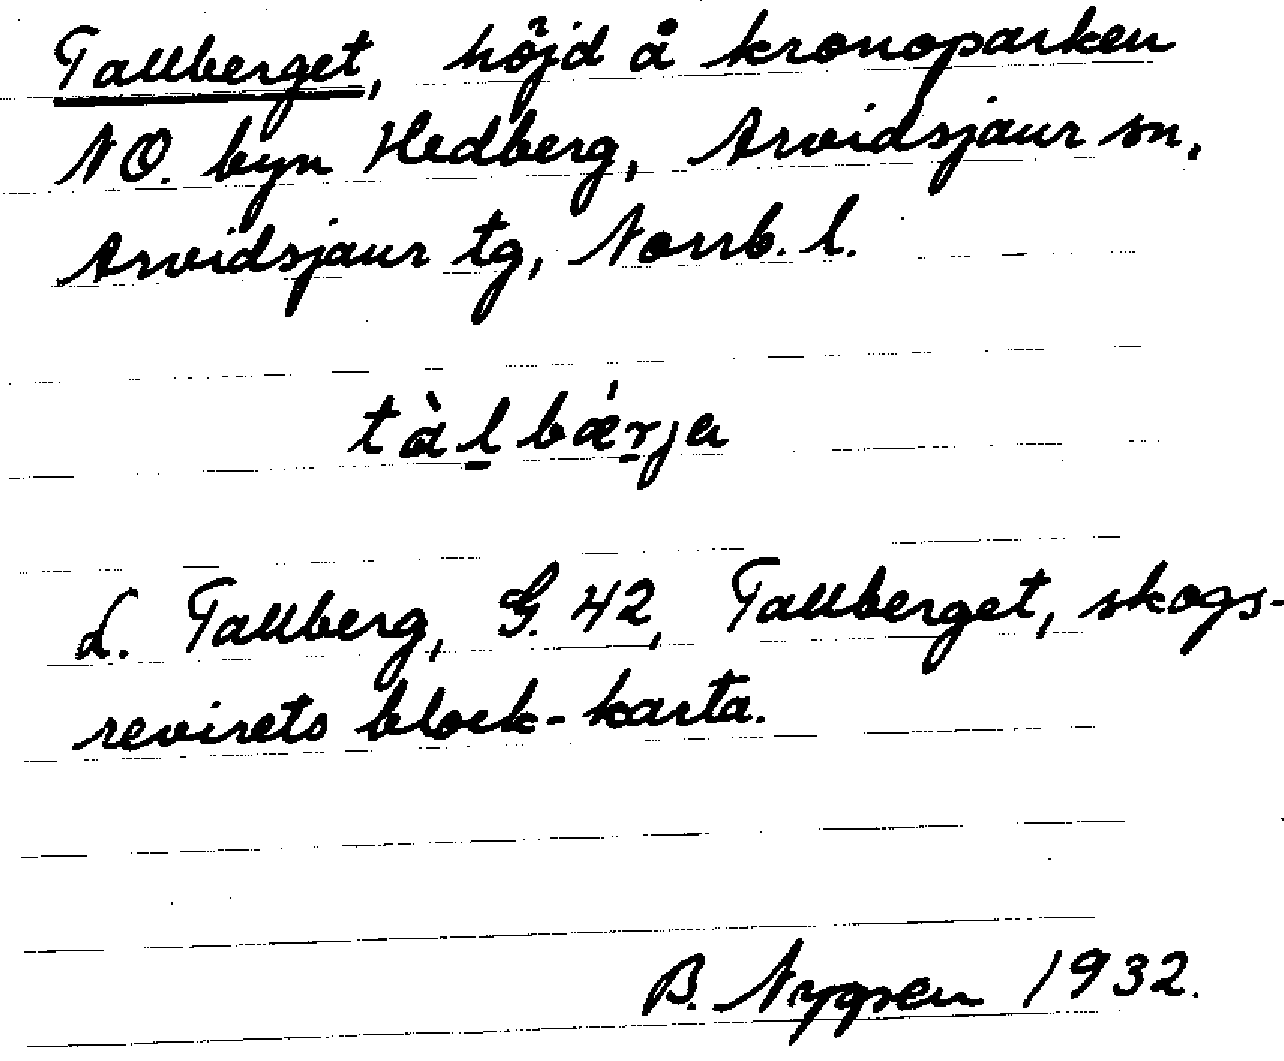 Tallberget, höjd å kronoparken
NO. byn Hedberg, Arvidsjaur sn,
Arvidsjaur tg, Norrb. l.
tàl̲bǽr̲ja
L. Tallberg, G. 42, Tallberget, skogs-
revirets block-karta.
B. Nygren 1932.